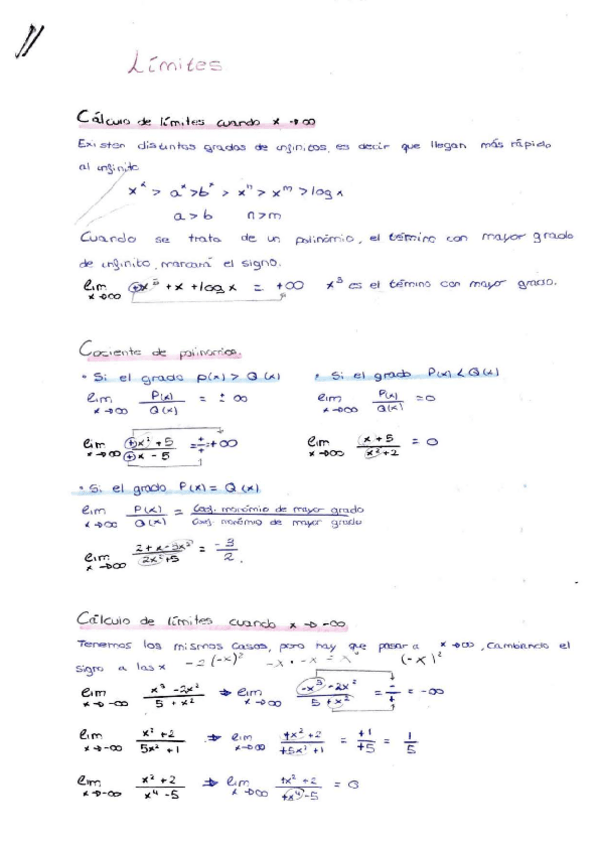 Límites
Cálculo de límites cuando x → ∞
Existen distintos grados de infinitos, es decir que llegan más rápido
al infinito
xˣ > aˣ > bˣ > xⁿ > xᵐ > log x
a > b n > m
Cuando se trata de un polinómio, el término con mayor grado
de infinito, marcará el signo.
lim x→∞ +x³ + x + log x = +∞ x³ es el témino con mayor grado.
Cociente de polinomios.
• Si el grado p(x) > Q(x) • Si el grado P(x) < Q(x)
lim x→∞ P(x)/Q(x) = ± ∞ lim x→∞ P(x)/Q(x) = 0
lim x→∞ (+x² + 5)/(+x - 5) = +/+ = +∞ lim x→∞ (x + 5)/(x² + 2) = 0
• Si el grado P(x) = Q(x)
lim x→∞ P(x)/Q(x) = Coef. monómio de mayor grado / Coef. monómio de mayor grado
lim x→∞ (2 + x - 3x²)/(2x² + 5) = -3/2.
Cálculo de límites cuando x → -∞
Tenemos los mismos casos, pero hay que pasar a x → ∞, cambiando el
signo a las x -2(-x)² -x · -x = x² (-x)²
lim x→-∞ (x³ - 2x²)/(5 + x²) ⇒ lim x→∞ (-x³ - 2x²)/(5 + x²) = -/+ = -∞
lim x→-∞ (x² + 2)/(5x² + 1) ⇒ lim x→∞ (+x² + 2)/(+5x² + 1) = +1/+5 = 1/5
lim x→-∞ (x² + 2)/(x⁴ - 5) ⇒ lim x→∞ (+x² + 2)/(+x⁴ - 5) = 0